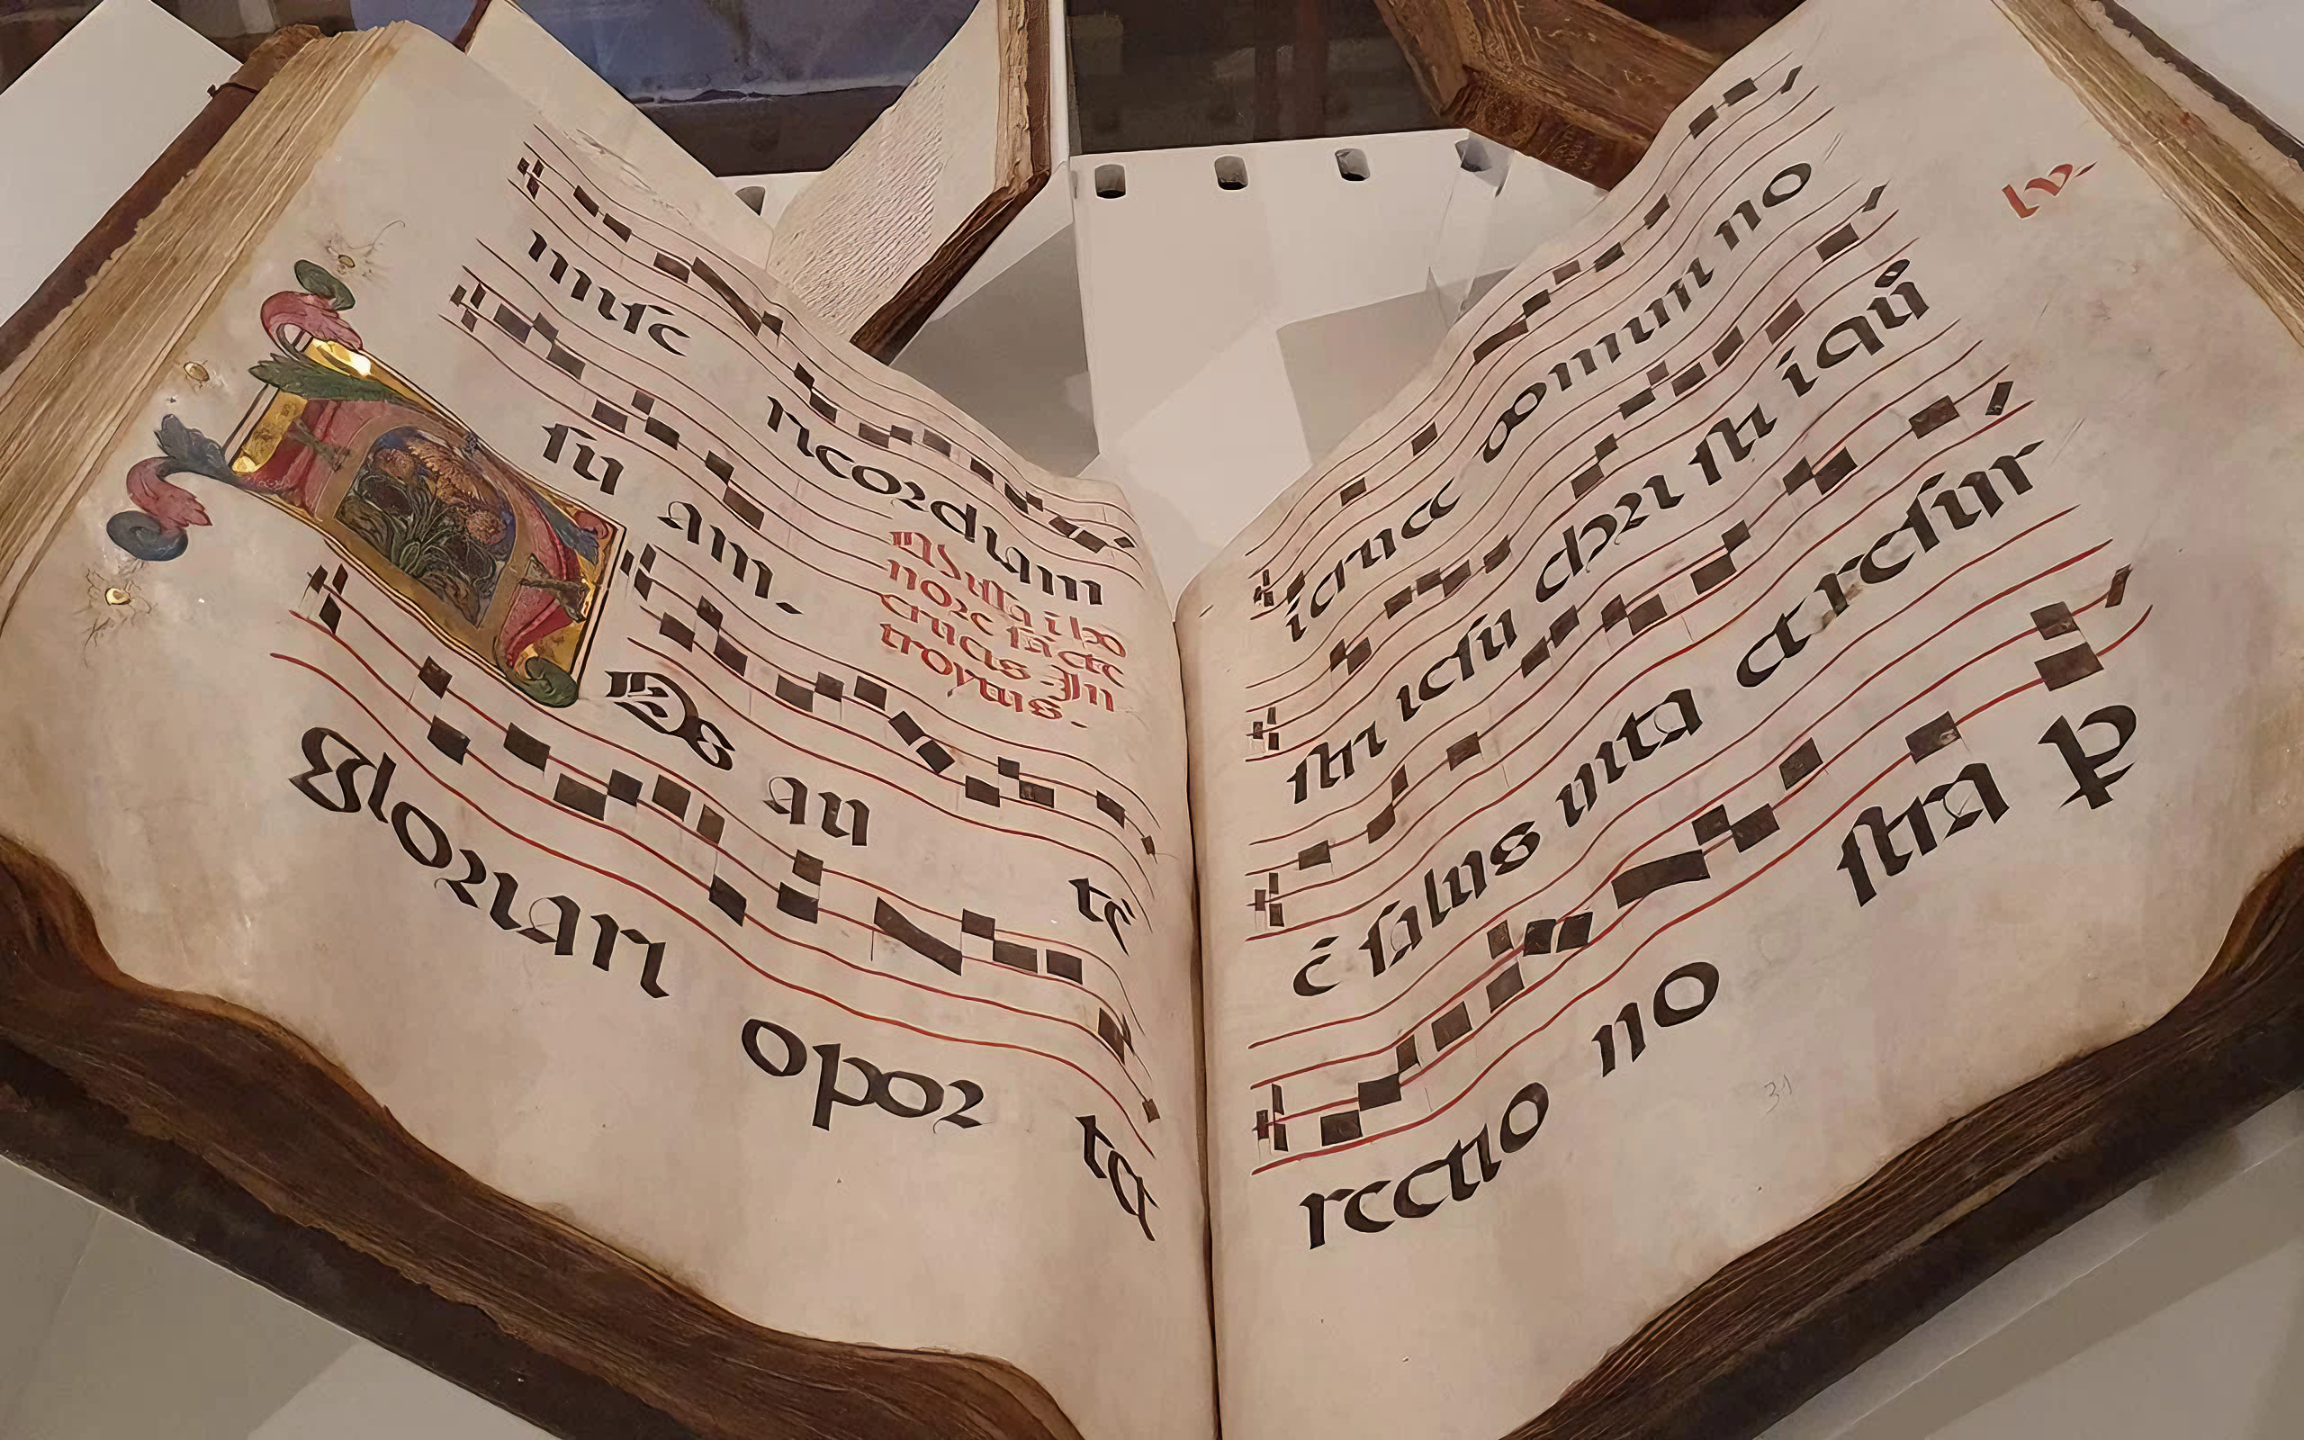 mise ricordiam
su am.
Missa i ho
nore sācte
crucis. In
troytus.
NOS au tē
gloriari opor te
lv.
i cruce domini no
stri iesu christi i quo
ē salus uita et resur
rectio no stra ꝑ
31